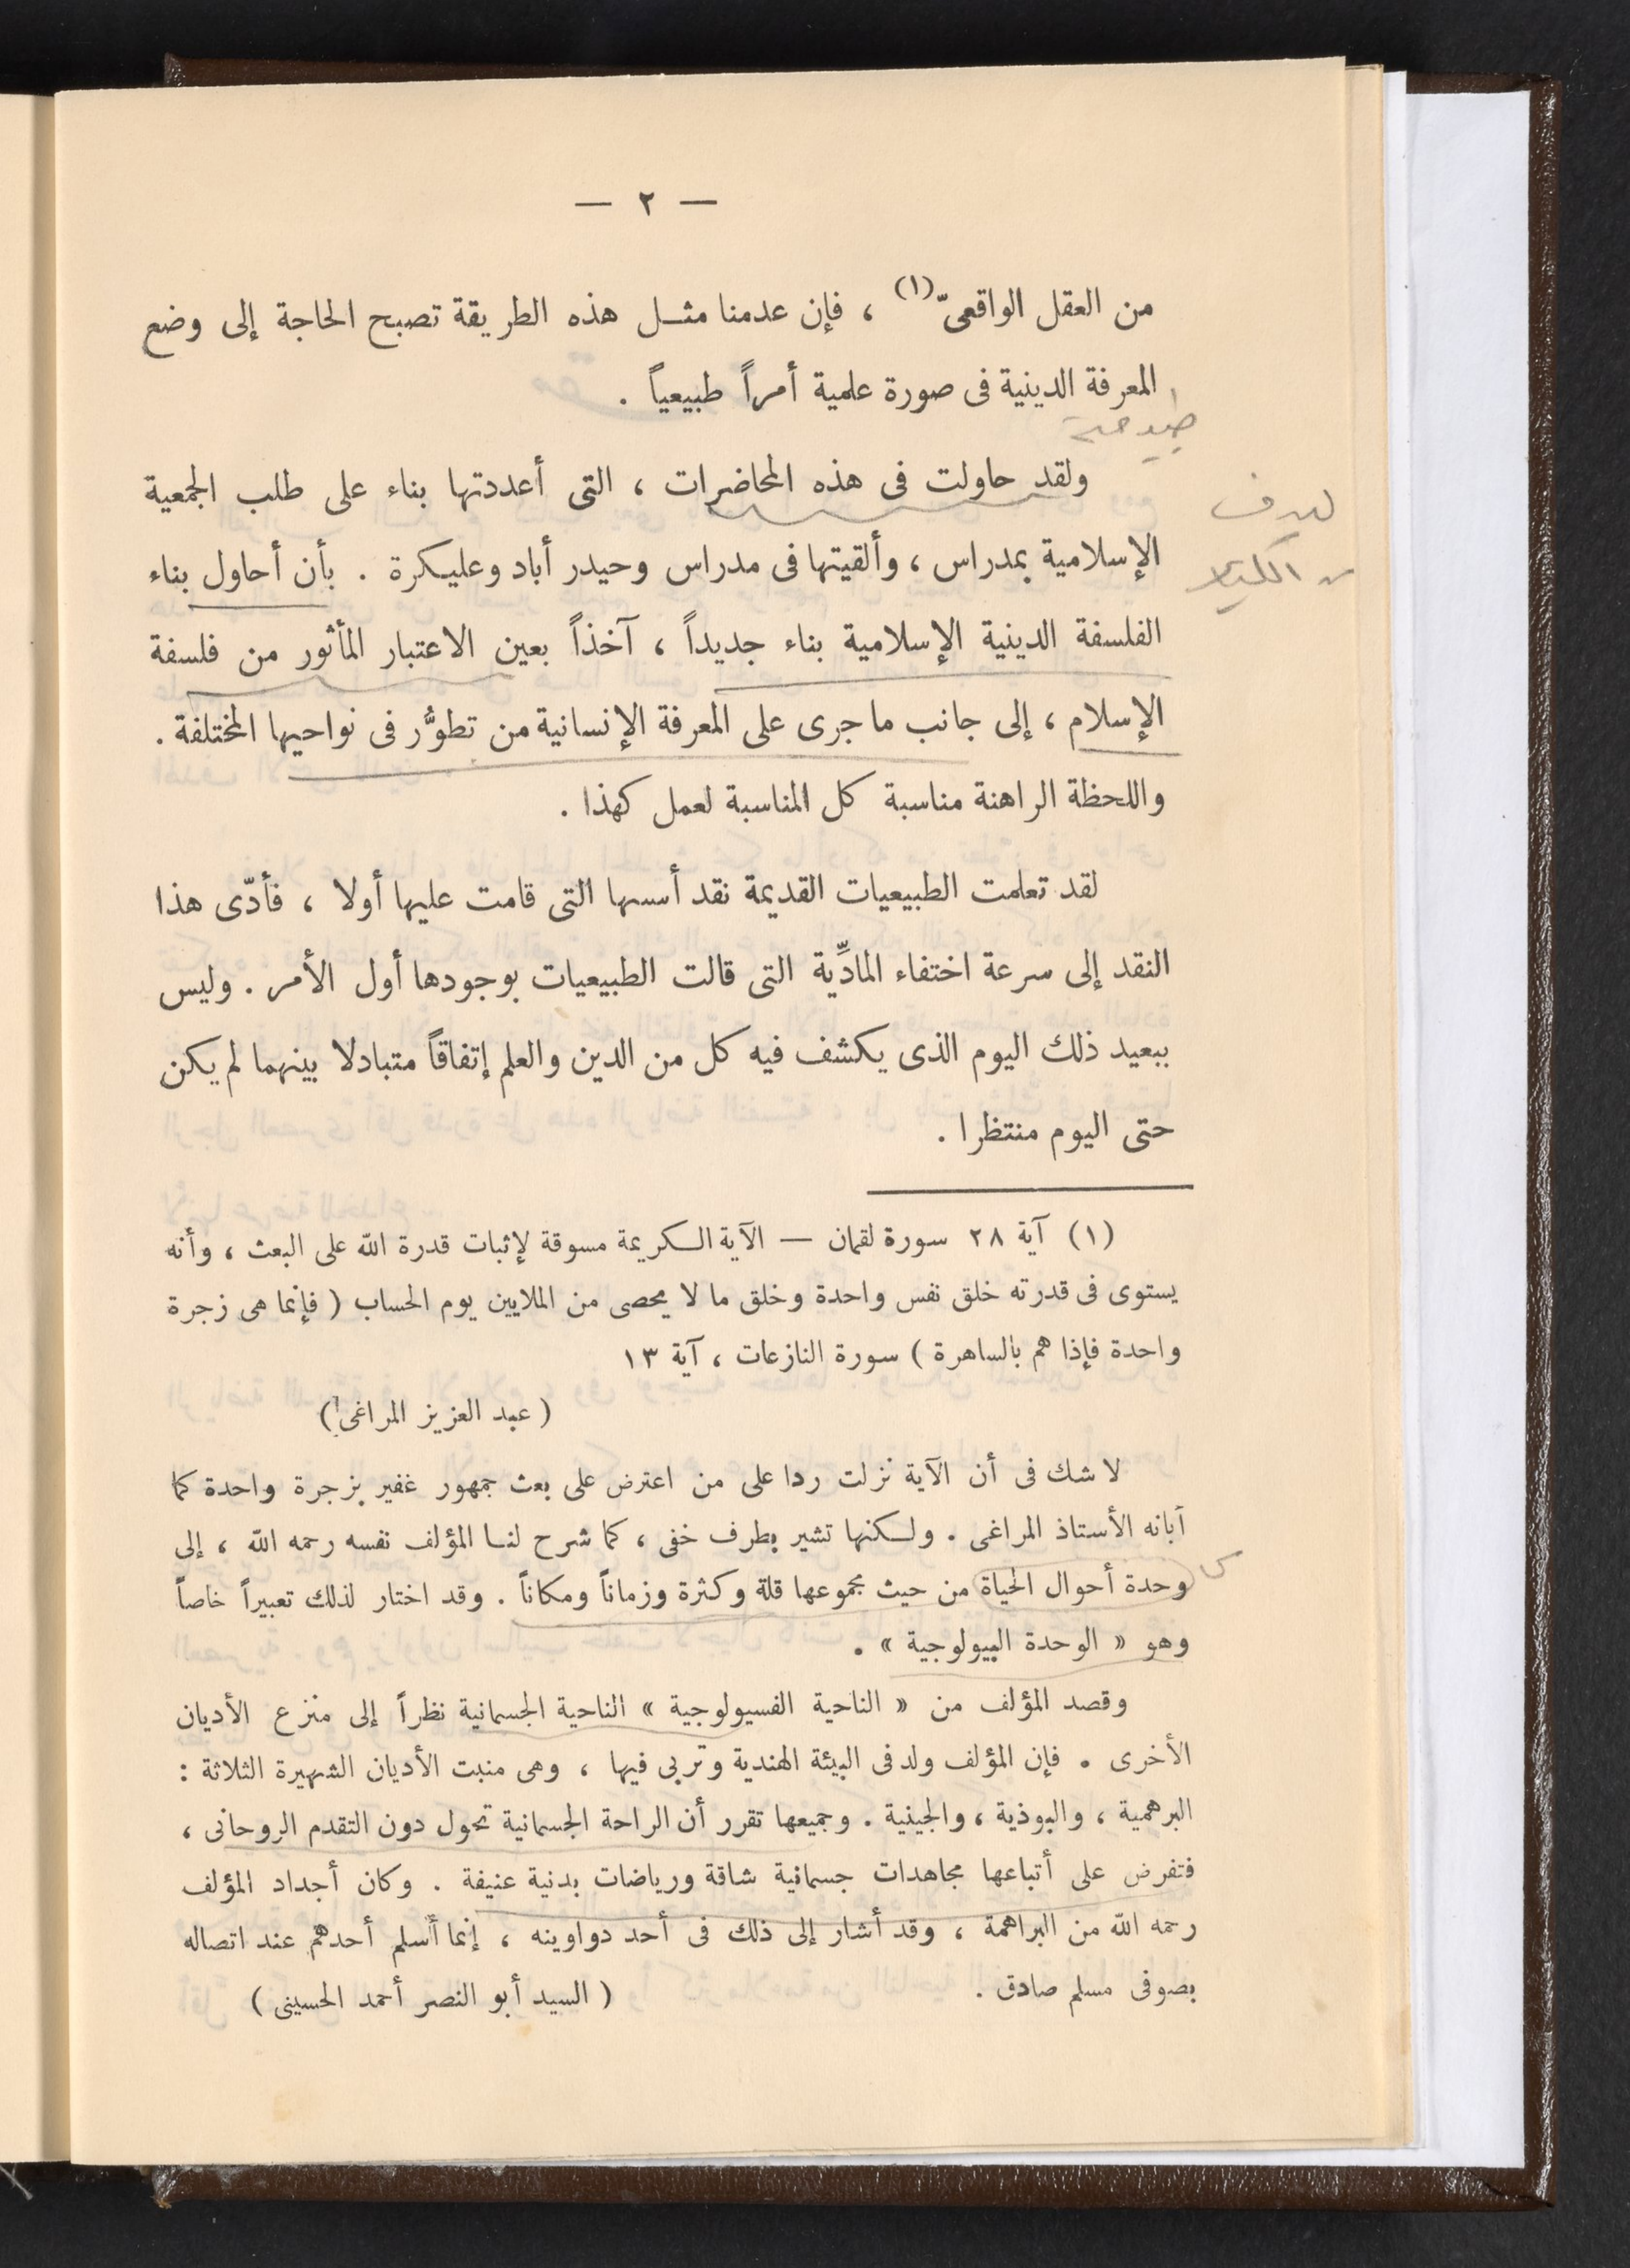 — ٢ —
من العقل الواقعىّ (١) ، فإن عدمنا مثـل هذه الطريقة تصبح الحاجة إلى وضع
المعرفة الدينية فى صورة علمية أمراً طبيعياً .
ولقد حاولت فى هذه المحاضرات ، التى أعددتها بناء على طلب الجمعية
الهدف
الإسلامية بمدراس ، وألقيتها فى مدراس وحيدر أباد وعليكرة . بأن أحاول بناء
من الكتاب
الفلسفة الدينية الإسلامية بناء جديداً ، آخذاً بعين الاعتبار المأثور من فلسفة
الإسلام ، إلى جانب ما جرى على المعرفة الإنسانية من تطوُّر فى نواحيها المختلفة .
واللحظة الراهنة مناسبة كل المناسبة لعمل كهذا .
لقد تعلمت الطبيعيات القديمة نقد أسسها التى قامت عليها أولا ، فأدّى هذا
النقد إلى سرعة اختفاء المادِّية التى قالت الطبيعيات بوجودها أول الأمر . وليس
ببعيد ذلك اليوم الذى يكشف فيه كل من الدين والعلم إتفاقاً متبادلا بينهما لم يكن
حتى اليوم منتظرا .
(١) آية ٢٨ سورة لقمان — الآية الكريمة مسوقة لإثبات قدرة الله على البعث ، وأنه
يستوى فى قدرته خلق نفس واحدة وخلق ما لا يحصى من الملايين يوم الحساب ( فإنما هى زجرة
واحدة فإذا هم بالساهرة ) سورة النازعات ، آية ١٣
( عبد العزيز المراغى )
لا شك فى أن الآية نزلت ردا على من اعترض على بعث جمهور غفير بزجرة واحدة كما
أبانه الأستاذ المراغى . ولكنها تشير بطرف خفى ، كما شرح لنا المؤلف نفسه رحمه الله ، إلى
وحدة أحوال الحياة من حيث مجموعها قلة وكثرة وزماناً ومكاناً . وقد اختار لذلك تعبيراً خاصاً
وهو « الوحدة البيولوجية » .
وقصد المؤلف من « الناحية الفسيولوجية » الناحية الجسمانية نظراً إلى منزع الأديان
الأخرى . فإن المؤلف ولد فى البيئة الهندية وتربى فيها ، وهى منبت الأديان الشهيرة الثلاثة :
البرهمية ، والبوذية ، والجينية . وجميعها تقرر أن الراحة الجسمانية تحول دون التقدم الروحانى ،
فتفرض على أتباعها مجاهدات جسمانية شاقة ورياضات بدنية عنيفة . وكان أجداد المؤلف
رحمه الله من البراهمة ، وقد أشار إلى ذلك فى أحد دواوينه ، إنما أسلم أحدهم عند اتصاله
بصوفى مسلم صادق . ( السيد أبو النصر أحمد الحسينى )